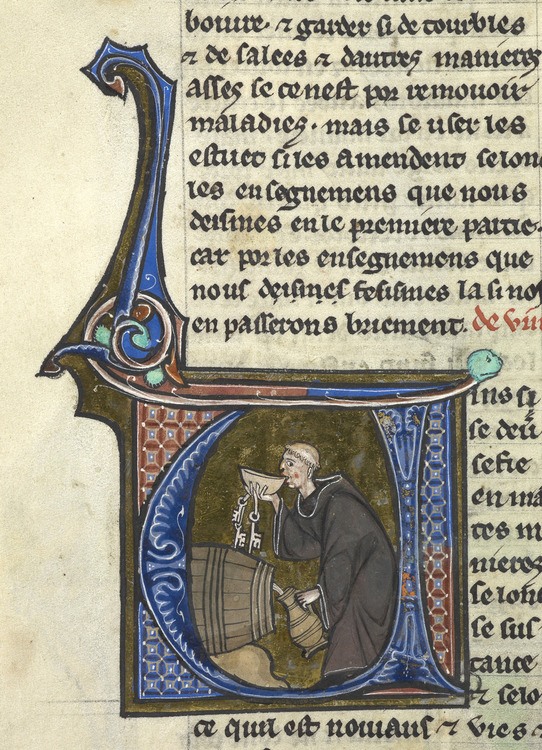 boivre ⁊ garder si de tourbles
⁊ de salees ⁊ dautres manieres
asses se ce nest por remouoir
maladies. mais se user les
estuet si les amendent selonc
les ensegnemens que nous
desimes en le premiere partie.
car por les ensegnemens que
nous desimes fesismes la si no
en passerons briement. de vin
ins si
se deu
sefie
en ma
tes m
nieres
se lonc
se sus
tance
⁊ selo
ce quil est nouiaus ⁊ vies ⁊